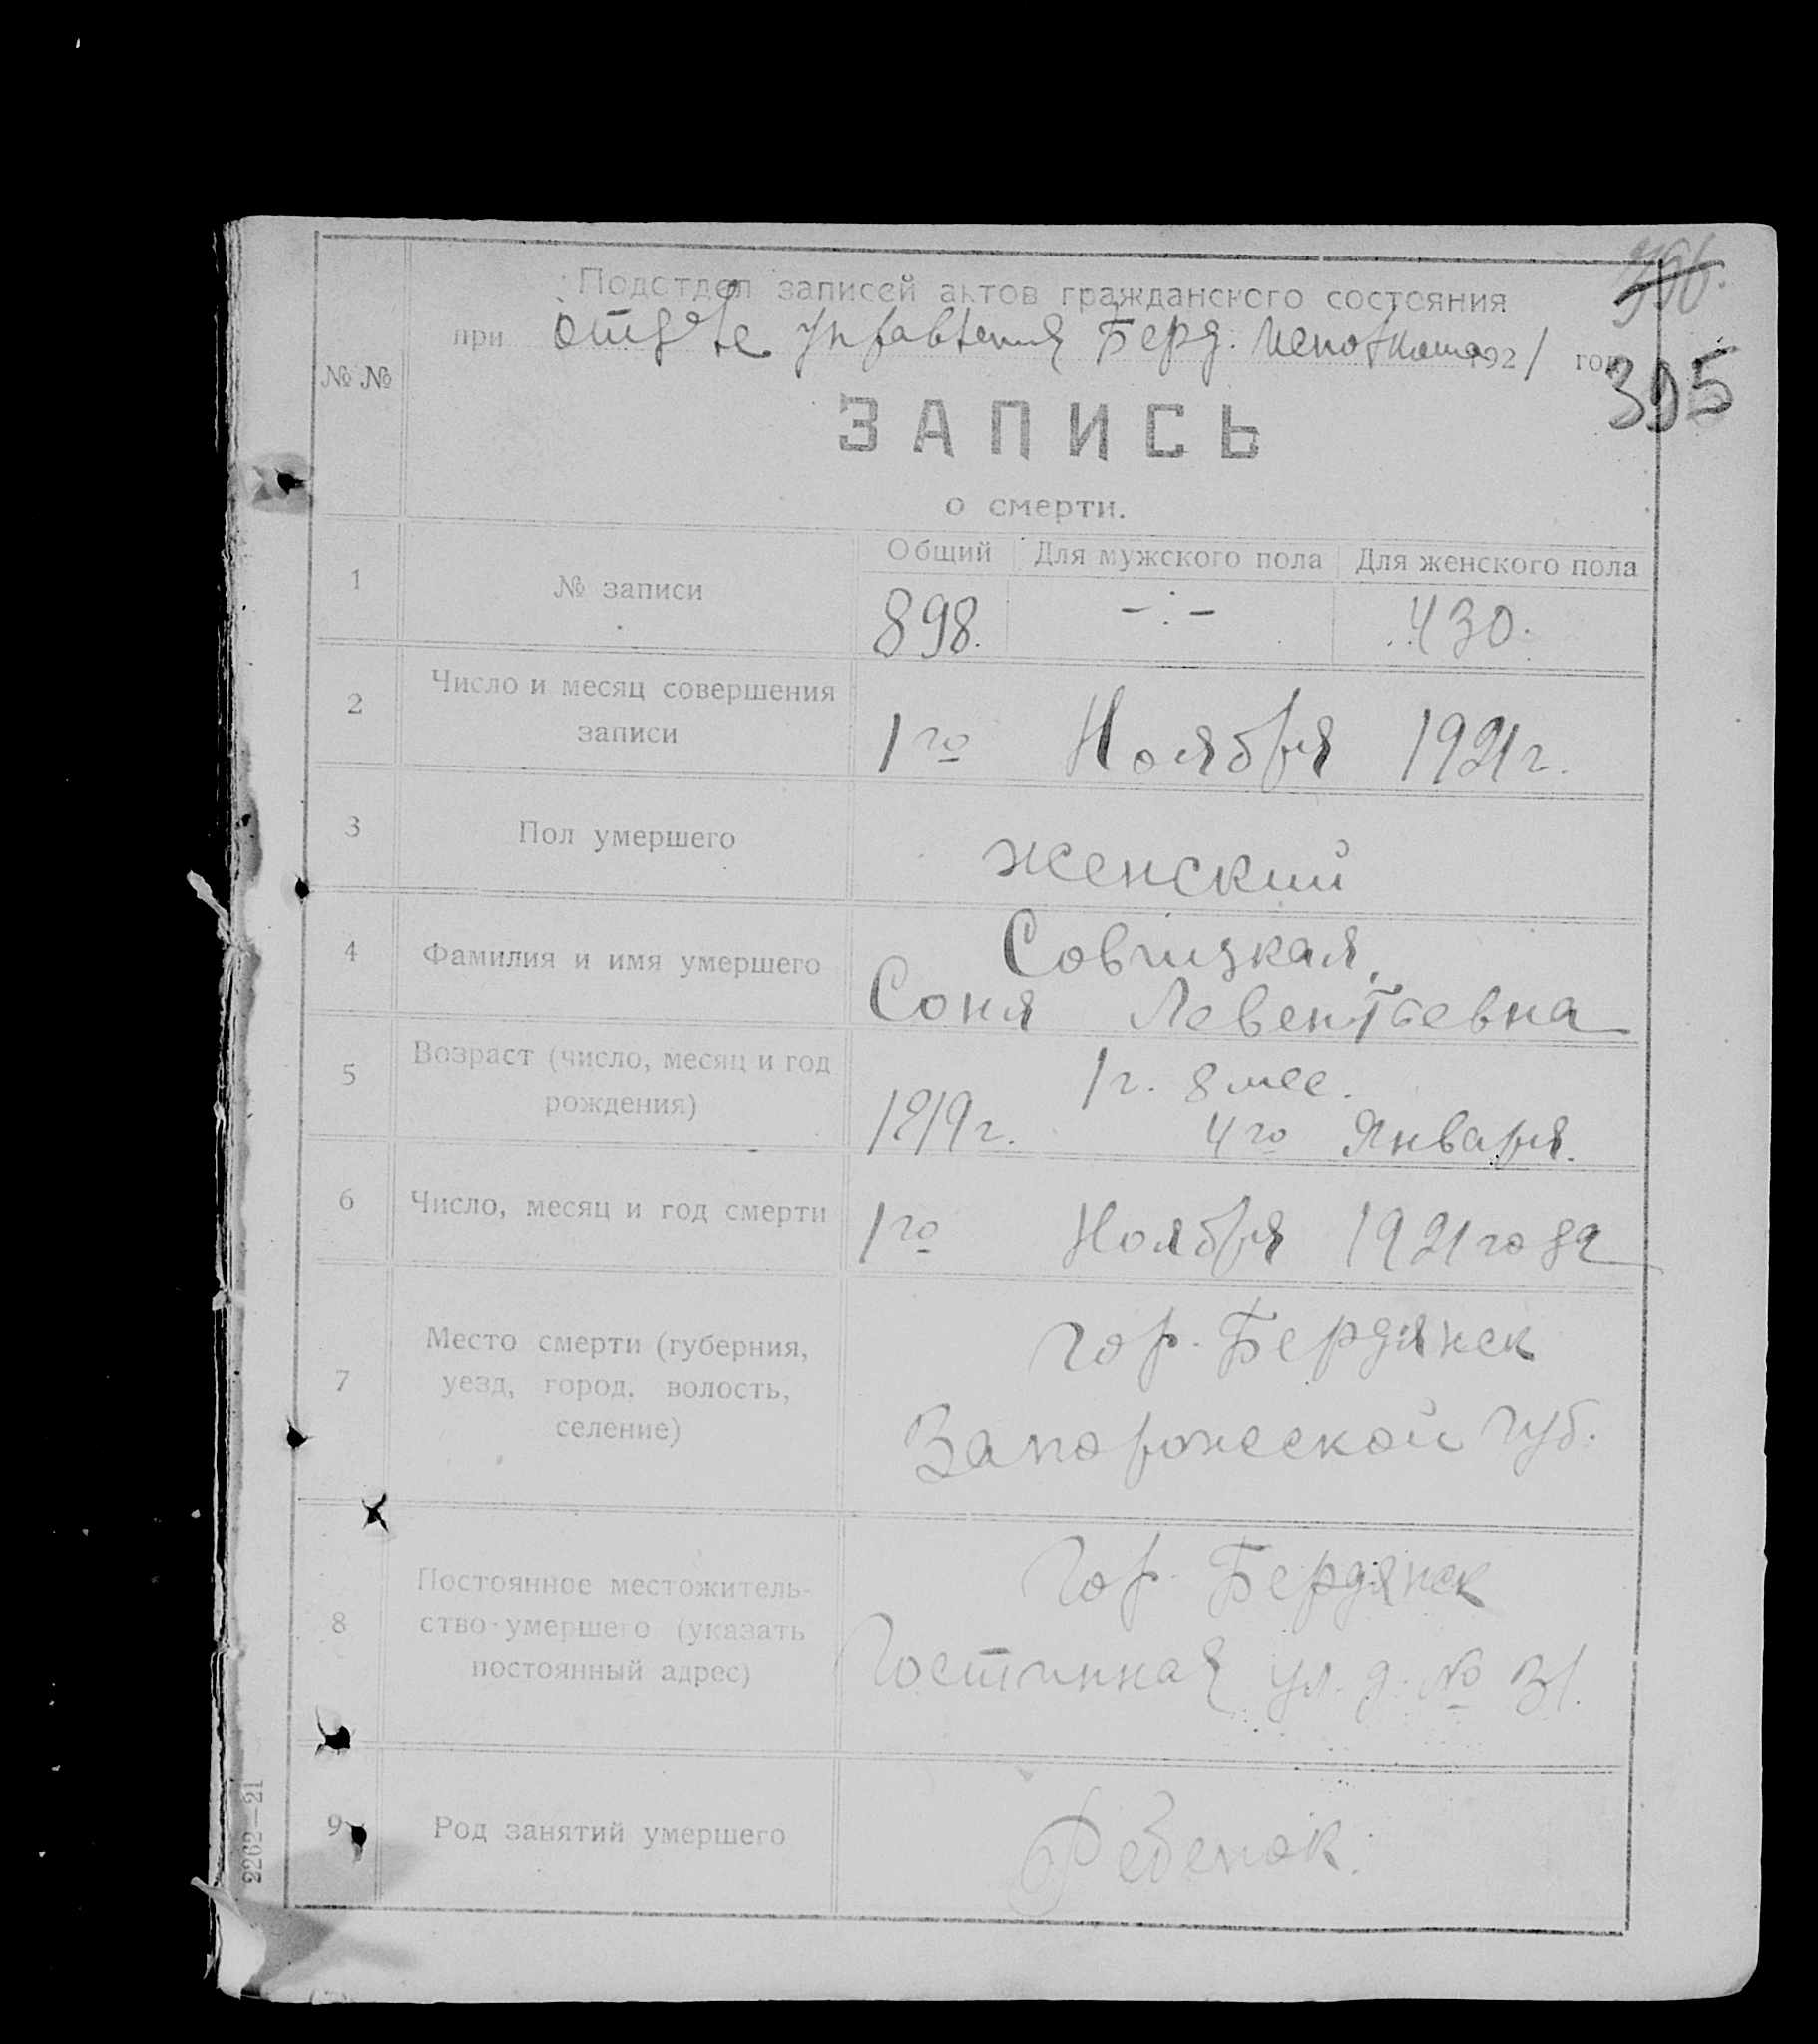 305
Подотдел записей актов гражданского состояния
при отделе управления Берд. исполкома 1921 год
№ №
ЗАПИСЬ
о смерти.
1 № записи
Общий Для мужского пола Для женского пола
898. -·- 430.
2 Число и месяц совершения
записи
1го Ноября 1921 г.
3 Пол умершего
женский
4 Фамилия и имя умершего
Совицкая,
Соня Левентьевна
5 Возраст (число, месяц и год
рождения)
1 г. 8 мес.
1919 г. 4го Января.
6 Число, месяц и год смерти
1го Ноября 1921 года
7 Место смерти (губерния,
уезд, город, волость,
селение)
гор. Бердянск
Запорожской губ.
8 Постоянное местожитель-
ство умершего (указать
постоянный адрес)
Гор. Бердянск
Гостинная ул. д. № 31.
9 Род занятий умершего
Ребенок.
2262—21